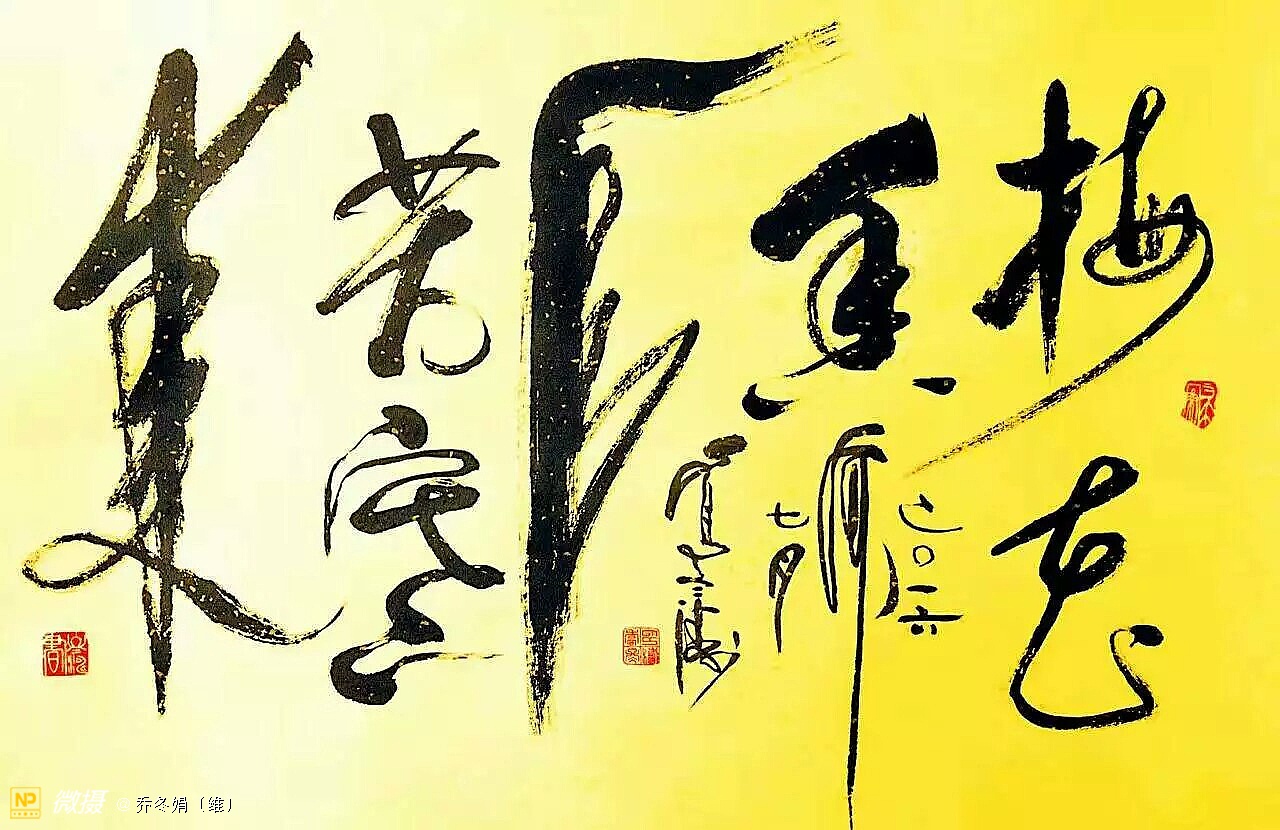 梅花
香
自
苦寒
来
二〇一六
七月
NP 微摄 @乔冬娟（維）